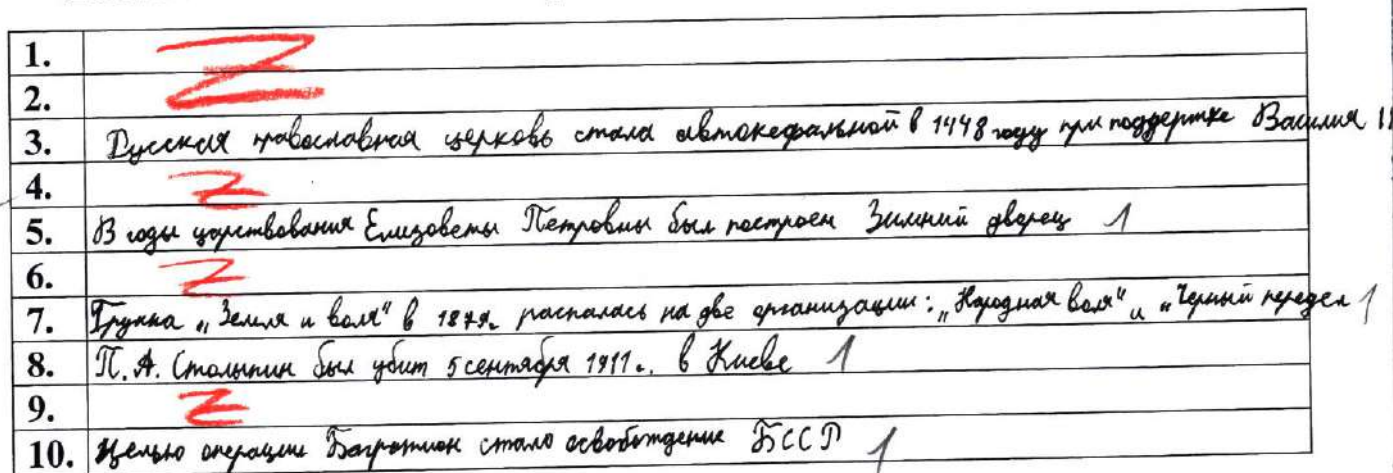 1.
2.
3. Русская православная церковь стала автокефальной в 1448 году при поддержке Василия II
4.
5. В годы царствования Елизаветы Петровны был построен Зимний дворец 1
6.
7. Группа „Земля и воля" в 1879г. распалась на две организации: „Народная воля" и „Черный передел 1
8. П. А. Столыпин был убит 5 сентября 1911г. в Киеве 1
9.
10. Целью операции Багратион стало освобождение БССР 1